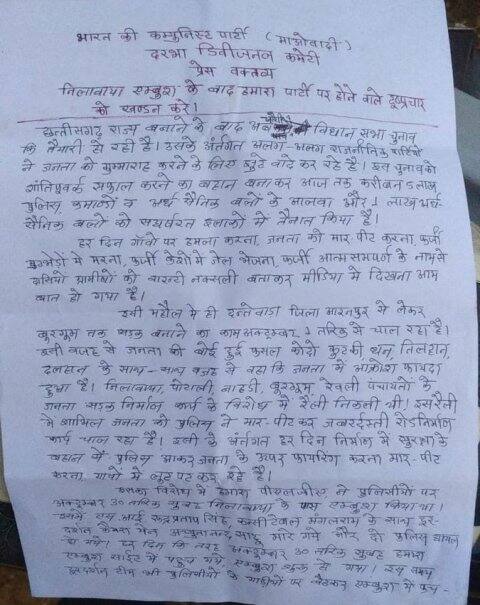 भारत की कम्युनिस्ट पार्टी (माओवादी)
दरभा डिवीजनल कमेटी
प्रेस वक्तव्य
निलावाया एम्बुश के बाद हमारा पार्टी पर होने वाले दुष्प्रचार
को खण्डन करे।
छत्तीसगढ़ राज्य बनाने के बाद अब विधान सभा चुनाव
कि तैयारी हो रही है। उसके अंतर्गत अलग-अलग राजनीतिक पार्टियां
ने जनता को गुमराह करने के लिए झूठे वादे कर रहे है। इस चुनाव को
शांतिपूर्वक सफल करने का बहाना बनाकर आज तक करीबन 5 लाख
पुलिस, कमाण्डो व अर्ध सैनिक बलों के अलावा और 1 लाख अर्ध
सैनिक बलो को संघर्षरत इलाकों में तैनात किया है।
हर दिन गाँवो पर हमला करना, जनता को मार-पीट करना, फर्जी
मुठभेड़ों में मरना, फर्जी केशो में जेल भेजना, फर्जी आत्म समर्पण के नाम से
ग्रामीणों को वारन्टी नक्सली बताकर मीडिया में दिखना आम
बात हो गया है।
इसी महौल में ही दन्तेवाड़ा जिला आरनपुर से लेकर
बुरगुम तक सड़क बनाने का काम अक्टूम्बर 1 तारिक से चाल रहा है।
इसी वजह से जनता की बोई हुई फसल कोदो कुटकी धन, तिलहन,
दलहन के साथ-साथ वजह से वहा कि जनता में आक्रोश फायदा
हुआ है। निलावाया, पोटाली, नाहडी, बुरगुम, रेवली पंचायतों के
जनता सड़क निर्माण कार्य के विरोध में रैली निकली थी। इस रैली
में शामिल जनता को पुलिस ने मार-पीट कर जबरदस्ती रोड निर्माण
कार्य चाल रहा है। इसी के अंतर्गत हर दिन निर्माण में सुरक्षा के
बहाने में पुलिस आकर जनता के ऊपर फायरिंग करना मार-पीट
करना, गावों में लूट पट कर रहे है।
इसका विरोध में हमारा पीएलजीए ने पुलिसीयों पर
अक्टूम्बर 30 तारिक सुबह निलावाया के पास एम्बुश किया था।
इसमें सब आई रूद्रप्रताप सिंह, कन्सीटेबल मंगलराम के साथ दूर-
दर्शन कैमरा मेन अच्युतानन्द साहू मारे गये और दो पुलिस घायल
हो गये। हर दिन कि तरह अक्टूम्बर 30 तारिक सुबह हमारा
एम्बुश साईट में पहुच गये एम्बुश शुरू हो गया। इस वक्त
दूरदर्शन टीम भी पुलिसीयों के गाड़ीयों पर बैठकर एम्बुश में फस-